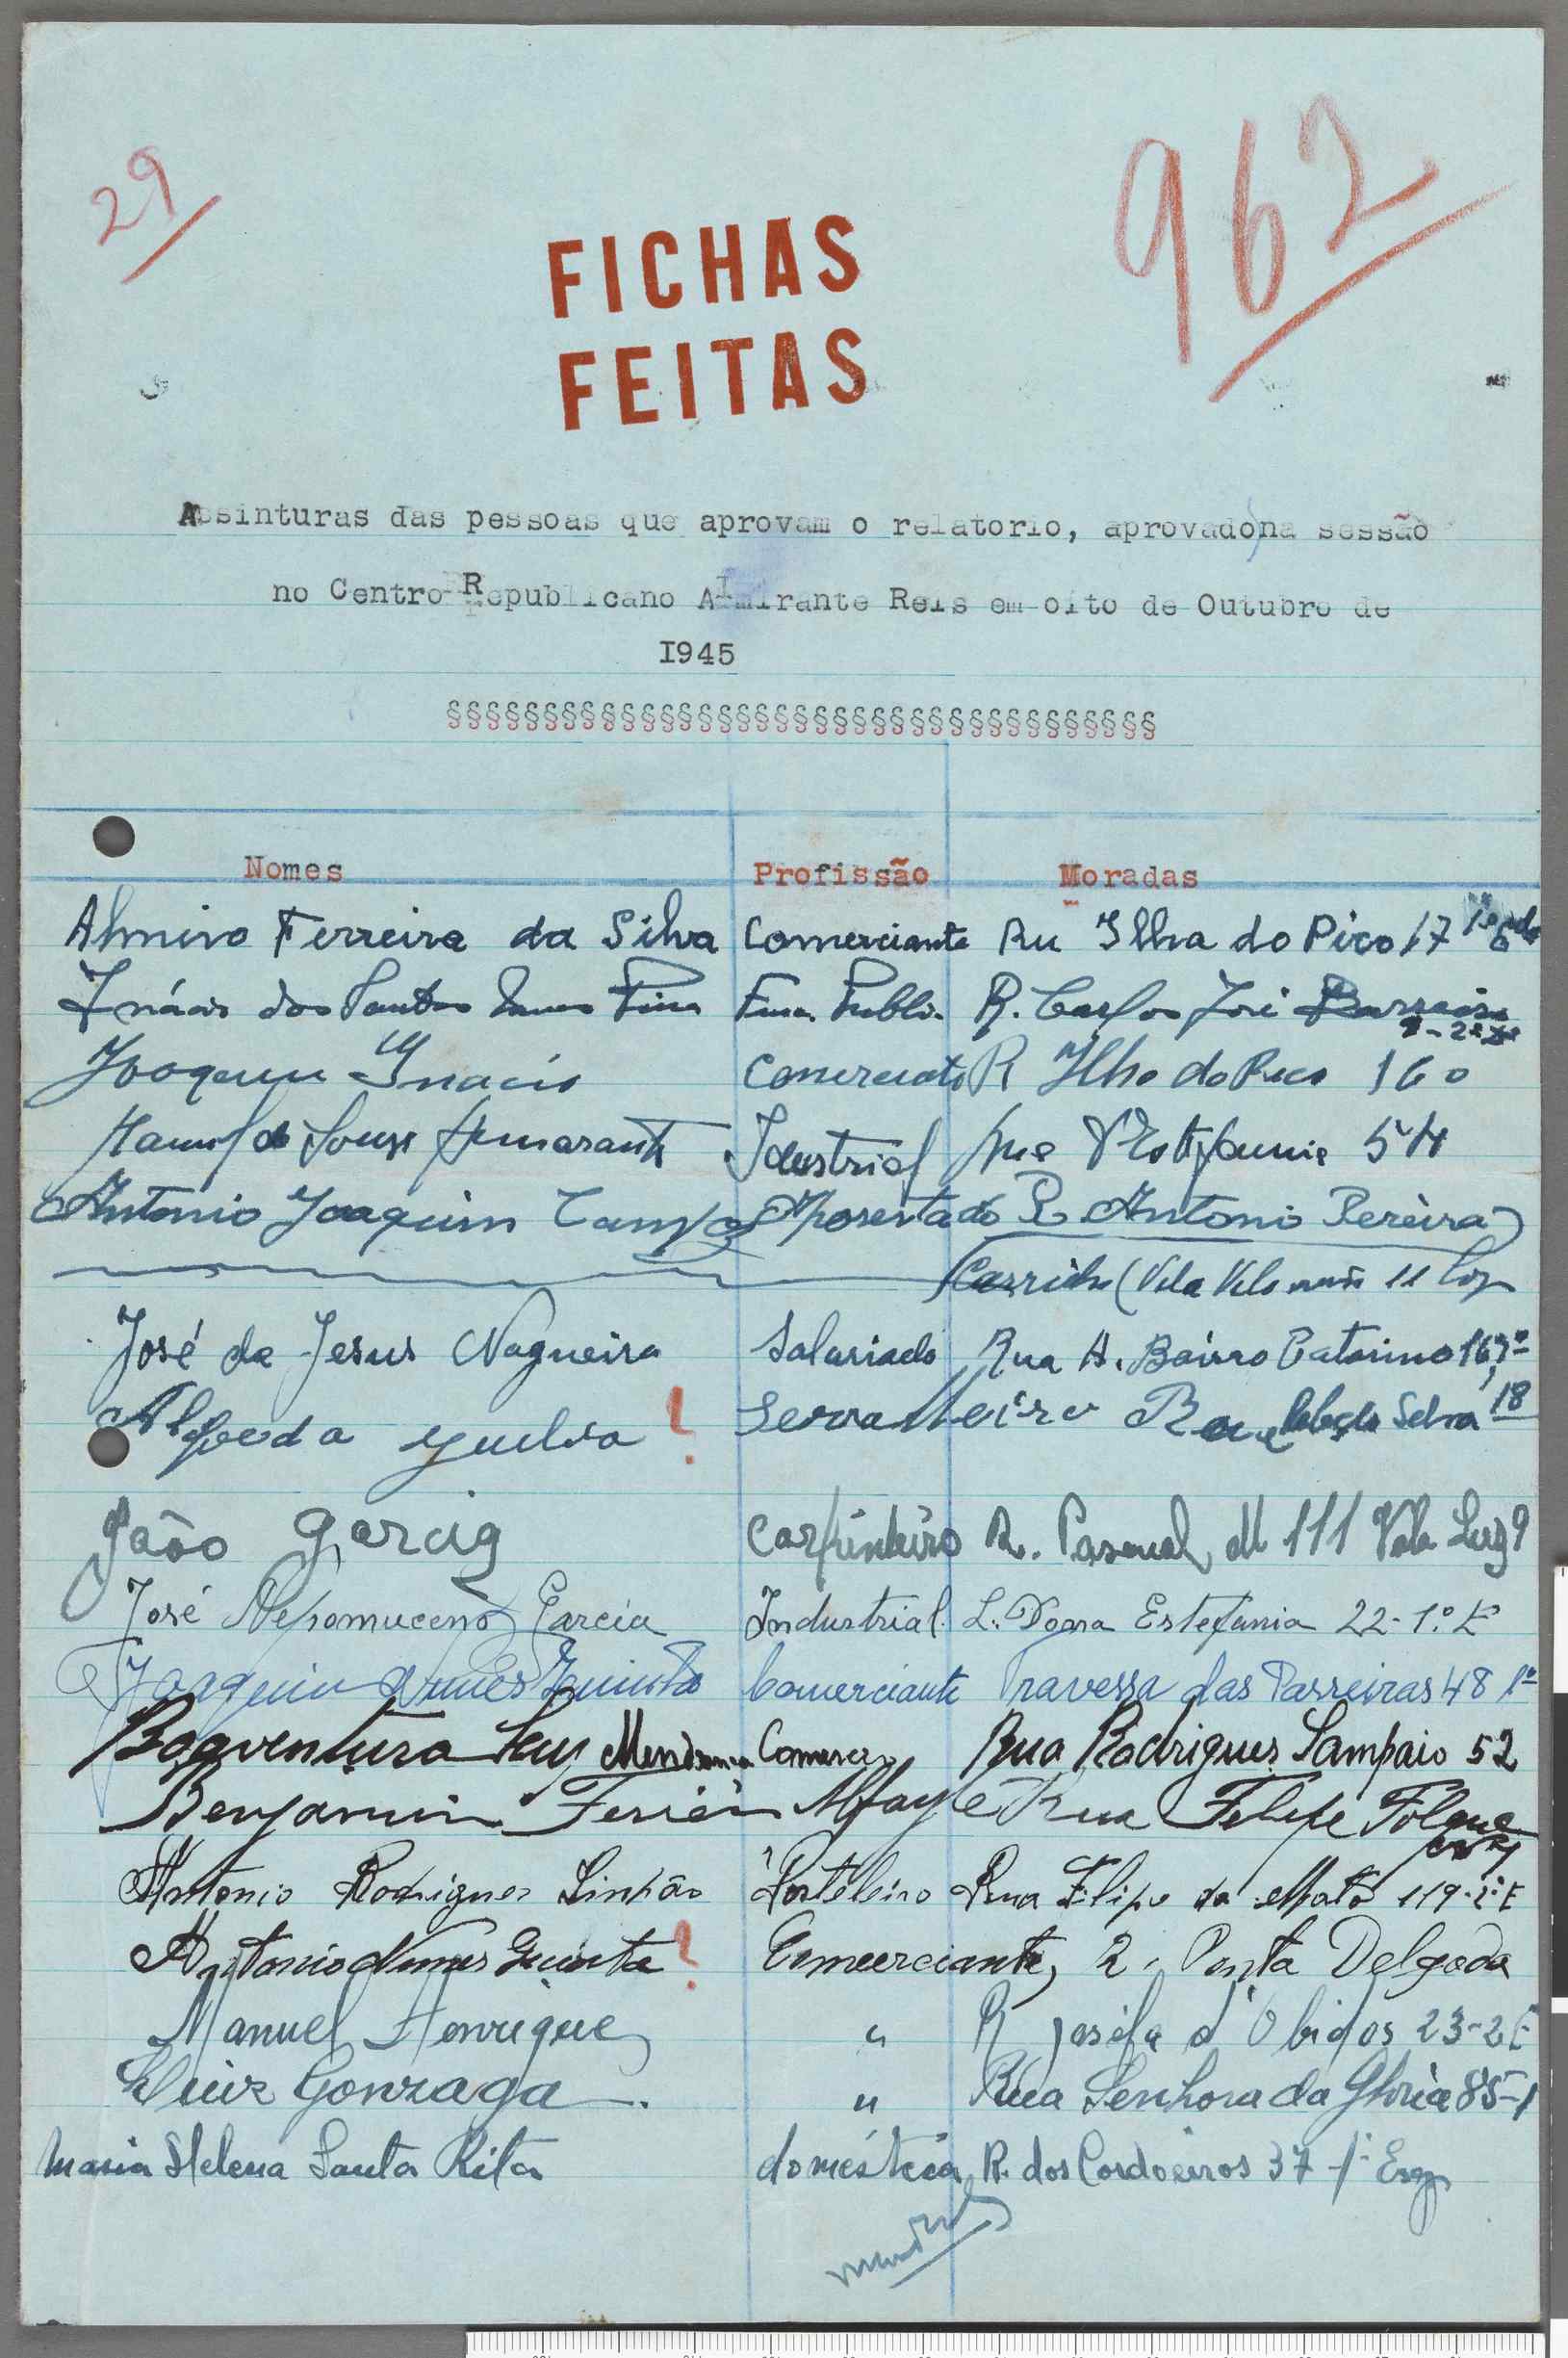 29
962
FICHAS
FEITAS
Assinturas das pessoas que aprovam o relatorio, aprovado na sessão
no Centro Republicano Almirante Reis em oito de Outubro de
I945
§§§§§§§§§§§§§§§§§§§§§§§§§§§§§§§§§§§§§
Nomes Profissão Moradas
Almiro Ferreira da Silva Comerciante Ru Ilha do Pico 17
Inácio dos Santos Pina Fun. Publi. R. Carlos José Barreiros
Joaquim Inacio Comerciante R Ilha do Pico 16
Manuel de Sousa Amarante Idustrial Rua D Estefania 54
Antonio Joaquim Campos Aposentado R Antonio Pereira
Carrilho (Vila 11
José de Jesus Nogueira Salariado Rua A. Bairro Catarino 16
! Serralheiro Rua Selva 18
João Garcia Carpinteiro R. Pascoal M 111 Vila Luz 9
José Nepomuceno Garcia Industrial L. Dona Estefania 22-1.º E
Joaquim Nunes Quinta Comerciante Travessa das Parreiras 48 1º
Boaventura Comerc Rua Rodrigues Sampaio 52
Benjamin Alfayte Rua Felipe Folque
Antonio Rodrigues Simão Rua Filipe da Mata 119-2º E
Antonio Nunes Quinta ! Comerciante, R. Ponta Delgada
Manuel Henriques " R Josefa d'Obidos 23-2 E
Luiz Gonzaga " Rua Senhora da Gloria 85-1
Maria Helena Santa Rita doméstica R. dos Cordoeiros 37-1º Esq